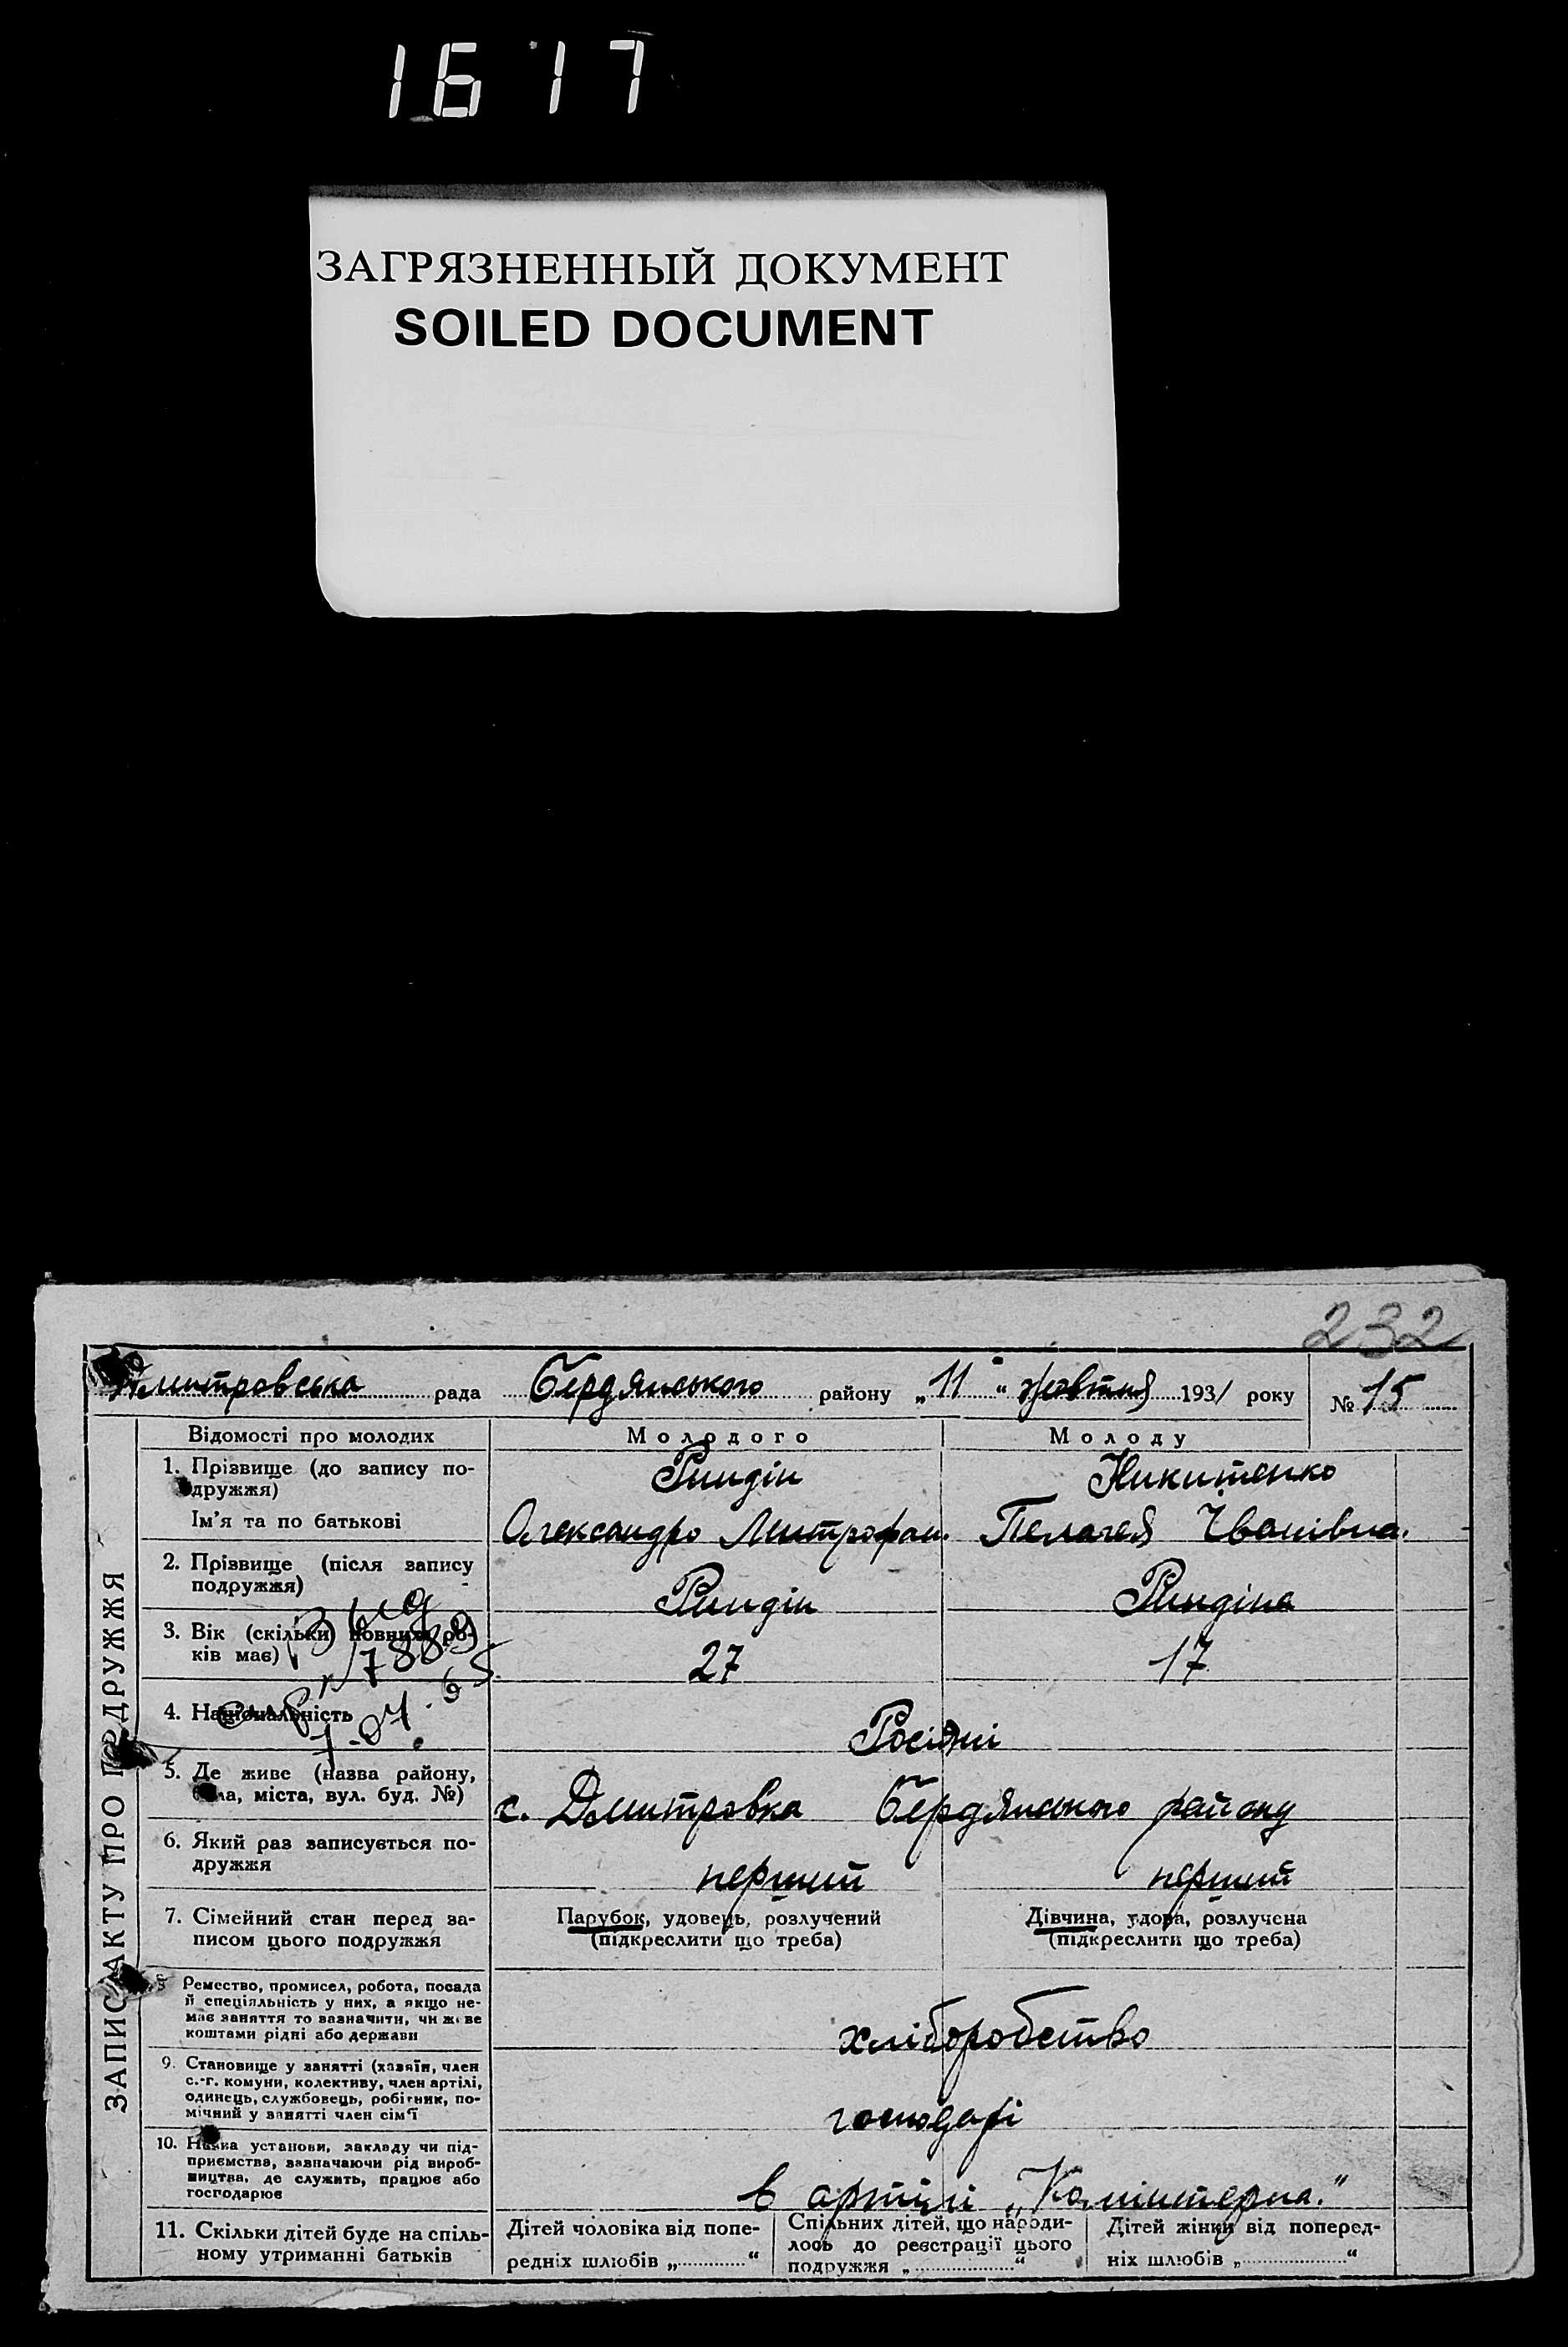 1617
ЗАГРЯЗНЕННЫЙ ДОКУМЕНТ
SOILED DOCUMENT
232
Дмитровська рада Бердянського району „11“ жовтня 1931 року № 15
ЗАПИС АКТУ ПРО ПОДРУЖЖЯ
Відомості про молодих
Молодого
Молоду
1. Прізвище (до запису по-
дружжя)
Риндін
Никитенко
Ім'я та по батькові
Олександро Митрофан.
Пелагея Іванівна.
2. Прізвище (після запису
подружжя)
Риндін
Риндіна
3. Вік (скільки повних ро-
ків має)
27
17
4. Національність
Росіяни
5. Де живе (назва району,
села, міста, вул. буд. №)
с. Дмитровка Бердянського району
6. Який раз записується по-
дружжя
перший
перший
7. Сімейний стан перед за-
писом цього подружжя
Парубок, удовець, розлучений
(підкреслити що треба)
Дівчина, удова, розлучена
(підкреслити що треба)
Ремество, промисел, робота, посада
й спеціяльність у них, а якщо не-
має заняття то зазначити, чи живе
коштами рідні або держави
хліборобство
9. Становище у занятті (хазяїн, член
с.-г. комуни, колективу, член артілі,
одинець, службовець, робітник, по-
мічний у занятті член сім'ї
господарі
10. Назва установи, закладу чи під-
приємства, зазначаючи рід вироб-
ництва, де служить, працює або
господарює
в артілі „Комінтерна.“
11. Скільки дітей буде на спіль-
ному утриманні батьків
Дітей чоловіка від попе-
редніх шлюбів „ “
Спільних дітей, що народи-
лось до реєстрації цього
подружжя „ “
Дітей жінки від поперед-
ніх шлюбів „ “